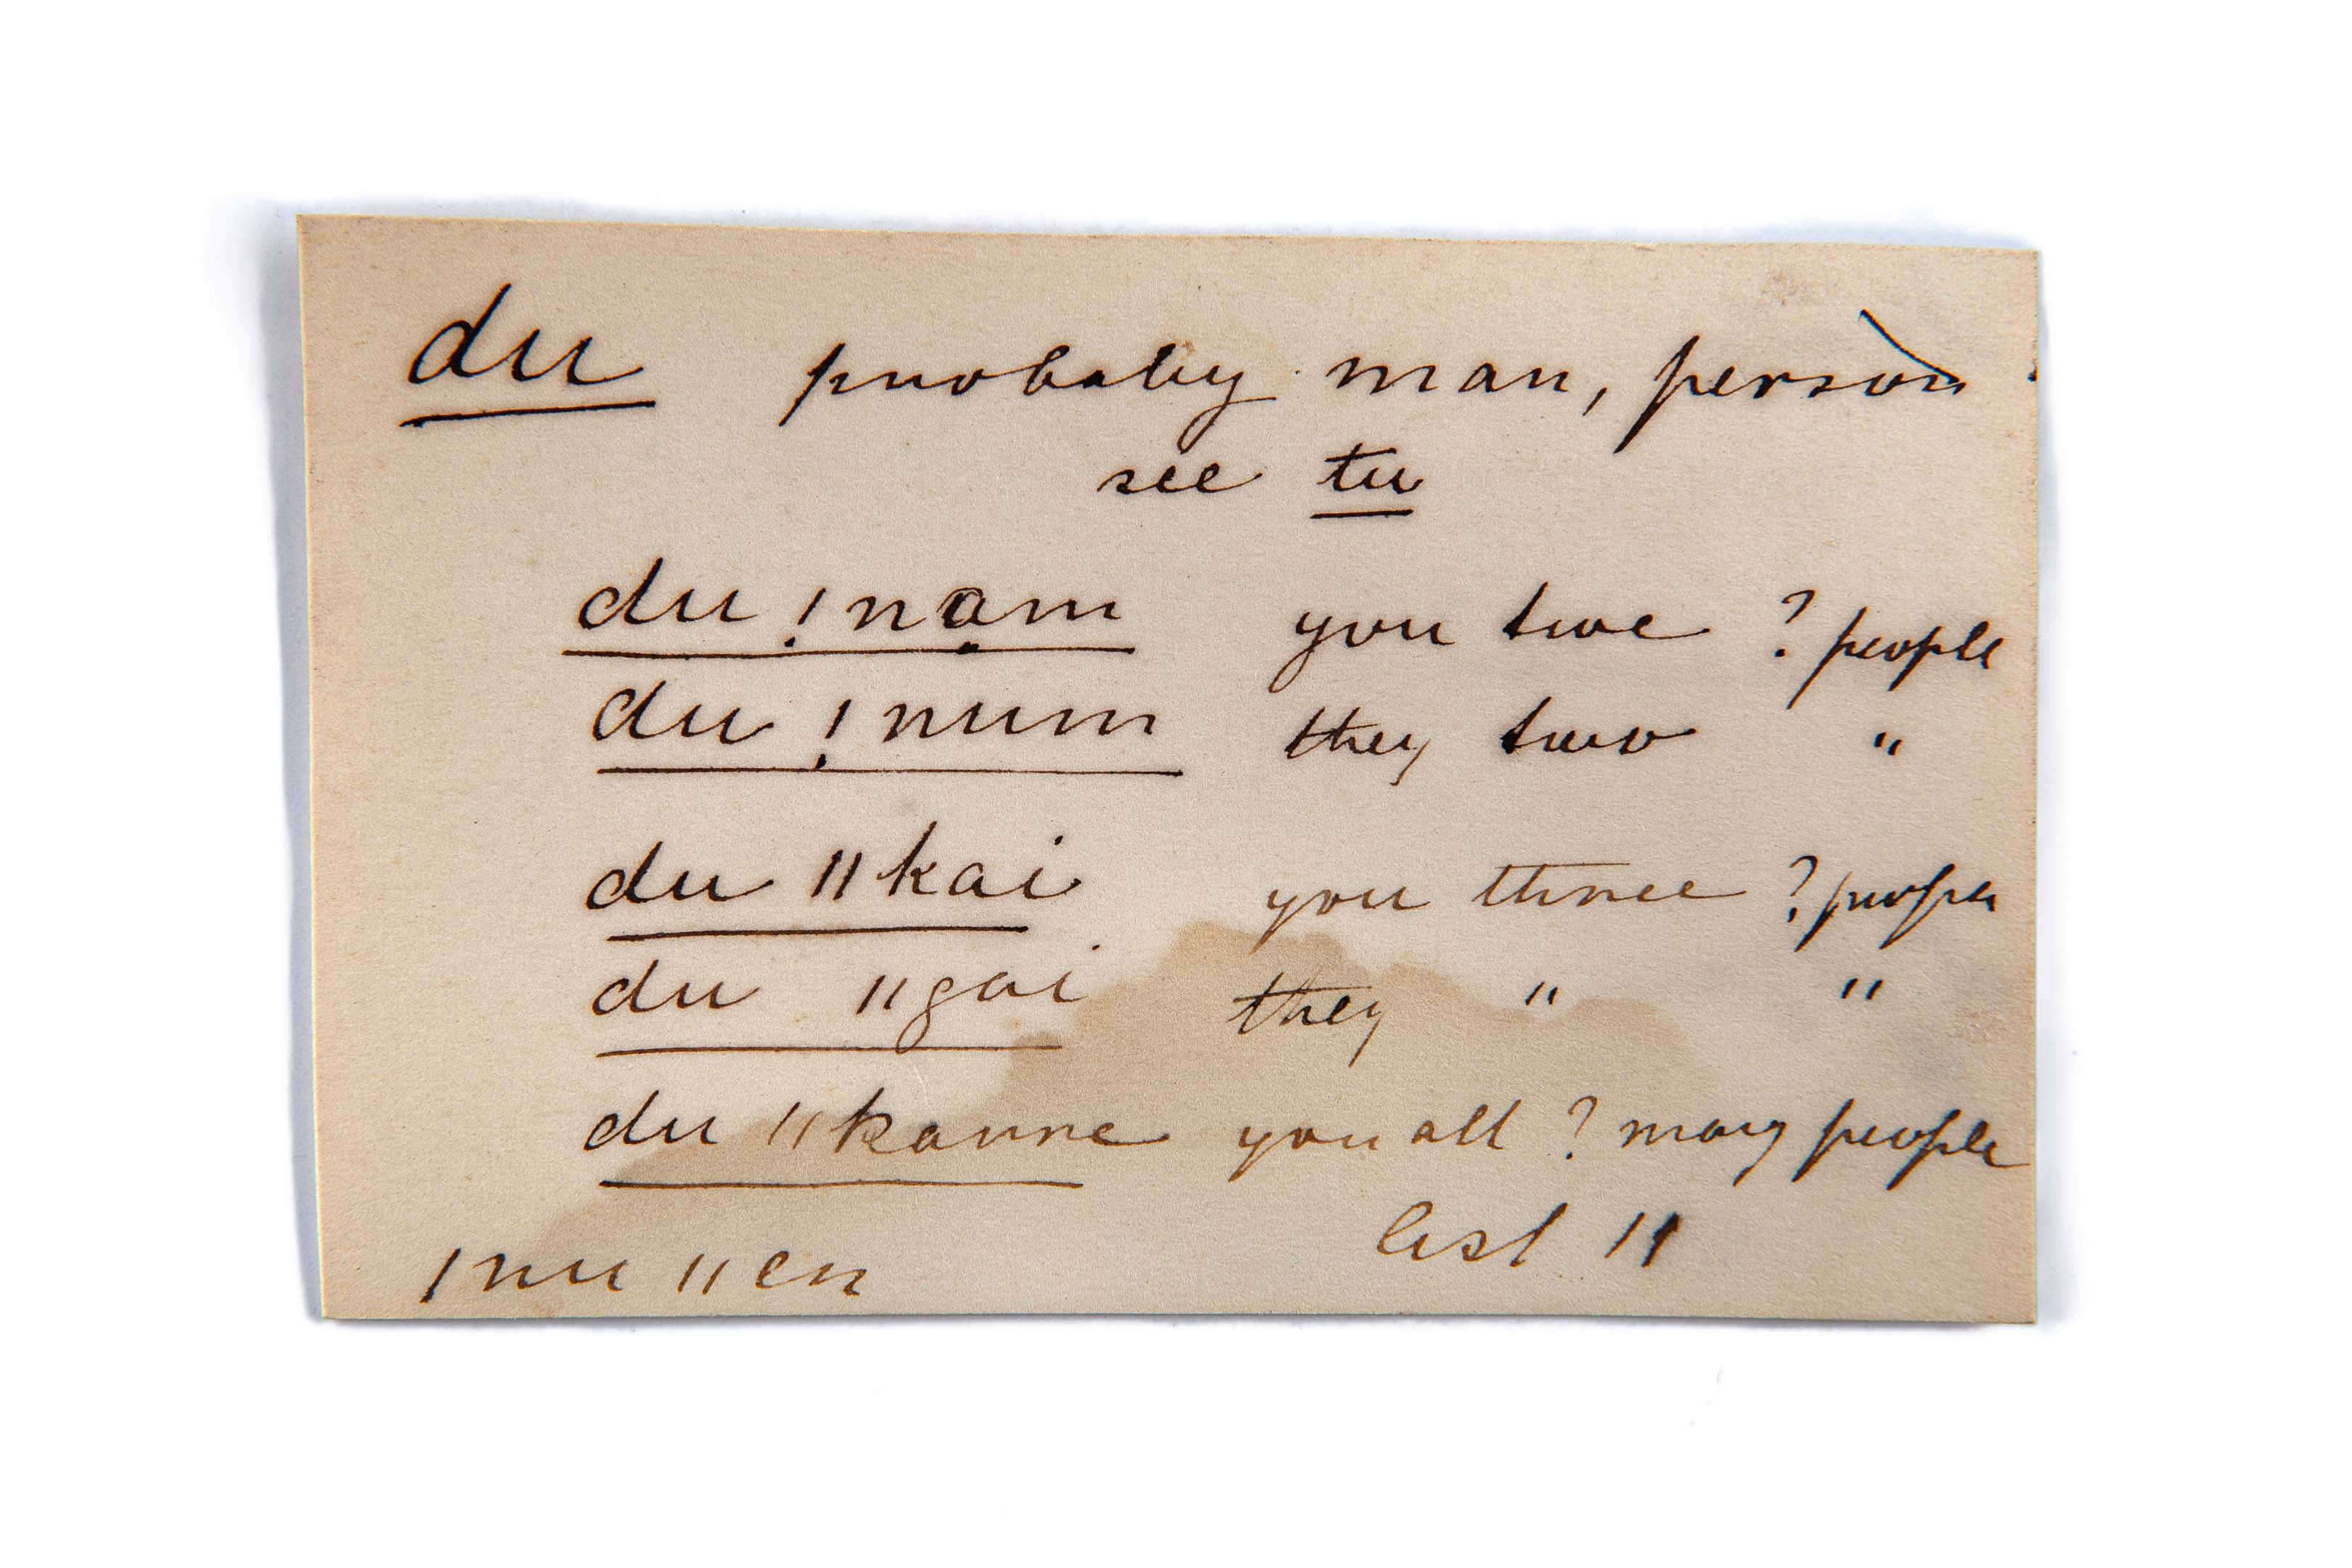 du probably man, person
see tu
du !nam you two ? people
du !num they two "
du ǁkai you three ? people
du ǁgai they " "
du ǁkanne you all ? many people
list 11
ǀnuǁen